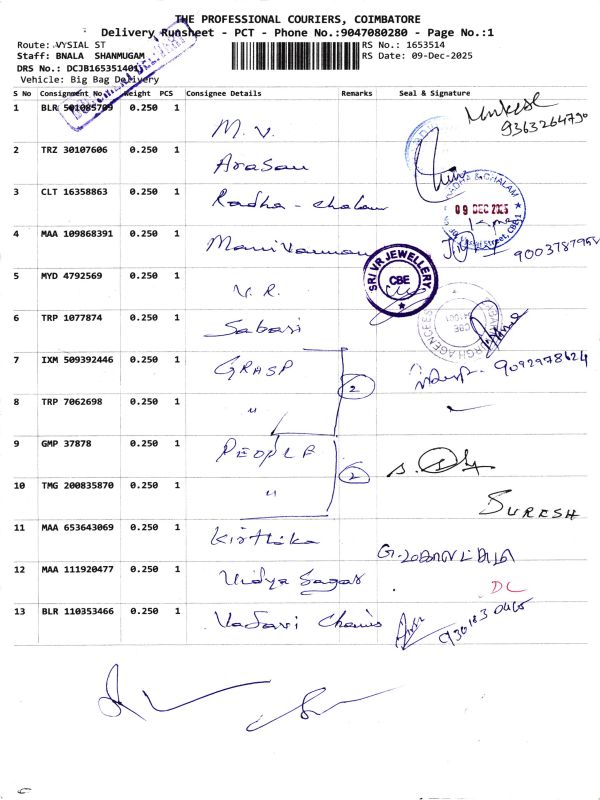 THE PROFESSIONAL COURIERS, COIMBATORE
Delivery Runsheet - PCT - Phone No.:9047080280 - Page No.:1
Route: VYSIAL ST RS No.: 1653514
Staff: BNALA SHANMUGAM RS Date: 09-Dec-2025
DRS No.: DCJB1653514011
Vehicle: Big Bag Delivery
S No Consignment No Weight PCS Consignee Details Remarks Seal & Signature
1 BLR 501085709 0.250 1 M. V. 9363264790
2 TRZ 30107606 0.250 1 Arasan
3 CLT 16358863 0.250 1 Radha - chalam
RADHA & CHALAM
09 DEC 2025
4 MAA 109868391 0.250 1 Manivannan
5 MYD 4792569 0.250 1 V. R.
SRI VR JEWELLERY
CBE
6 TRP 1077874 0.250 1 Sabari
CBE
7 IXM 509392446 0.250 1 GRASP 2 9092978624
8 TRP 7062698 0.250 1 "
9 GMP 37878 0.250 1 PEOPLE 2
10 TMG 200835870 0.250 1 " SURESH
11 MAA 653643069 0.250 1 Kirthika
12 MAA 111920477 0.250 1 Vidya Sagar DC
13 BLR 110353466 0.250 1